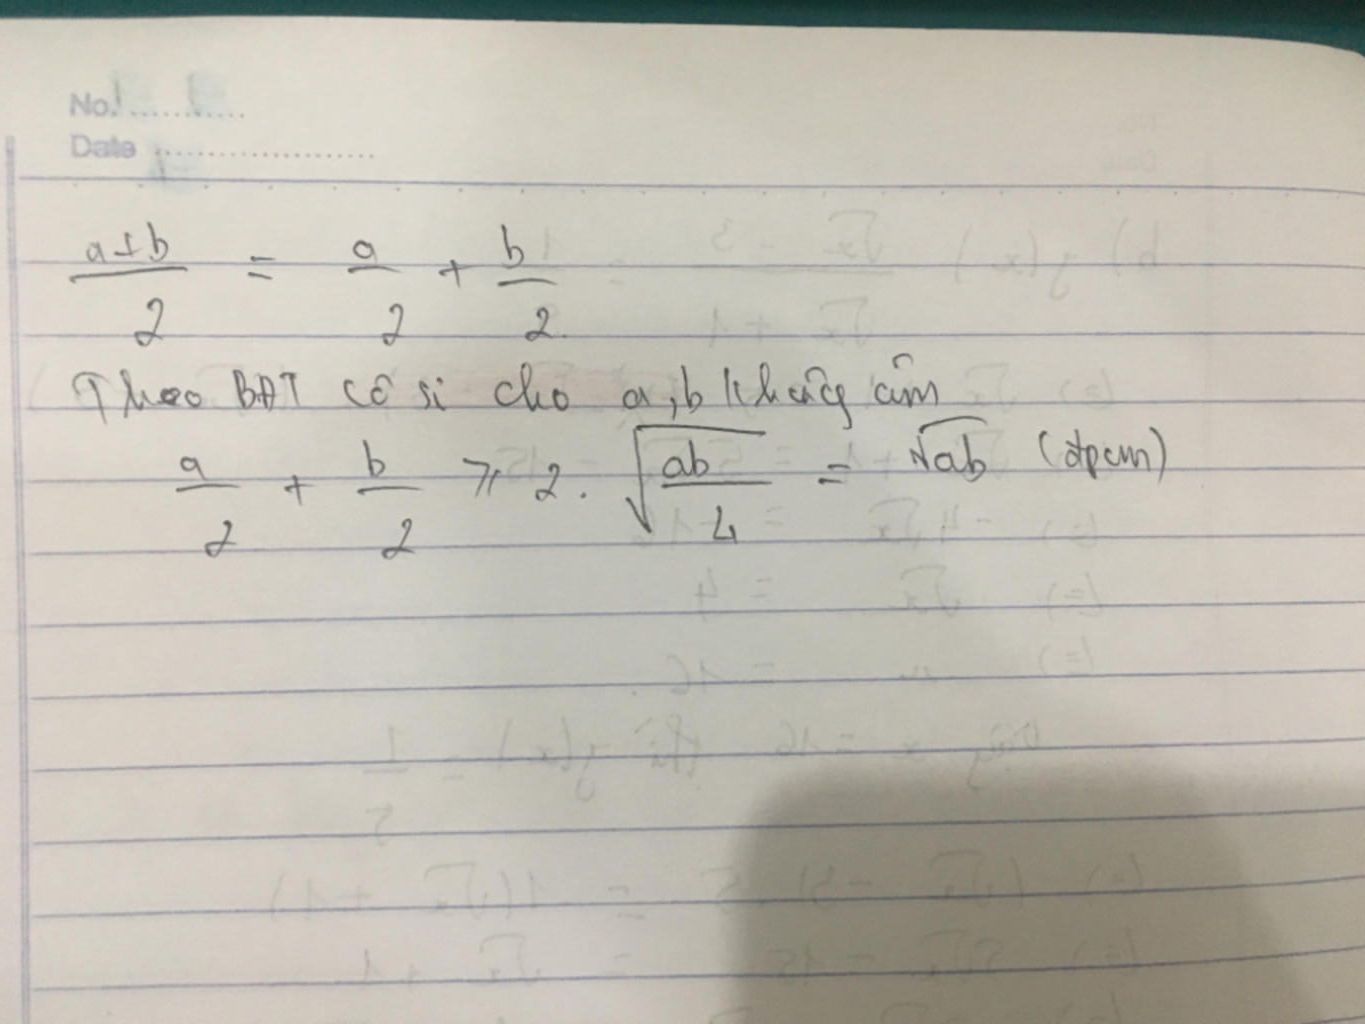 No.
Date
a+b/2 = a/2 + b/2.
Theo BĐT cô si cho a,b không âm
a/2 + b/2 ⩾ 2. √(ab/4) = √ab (đpcm)